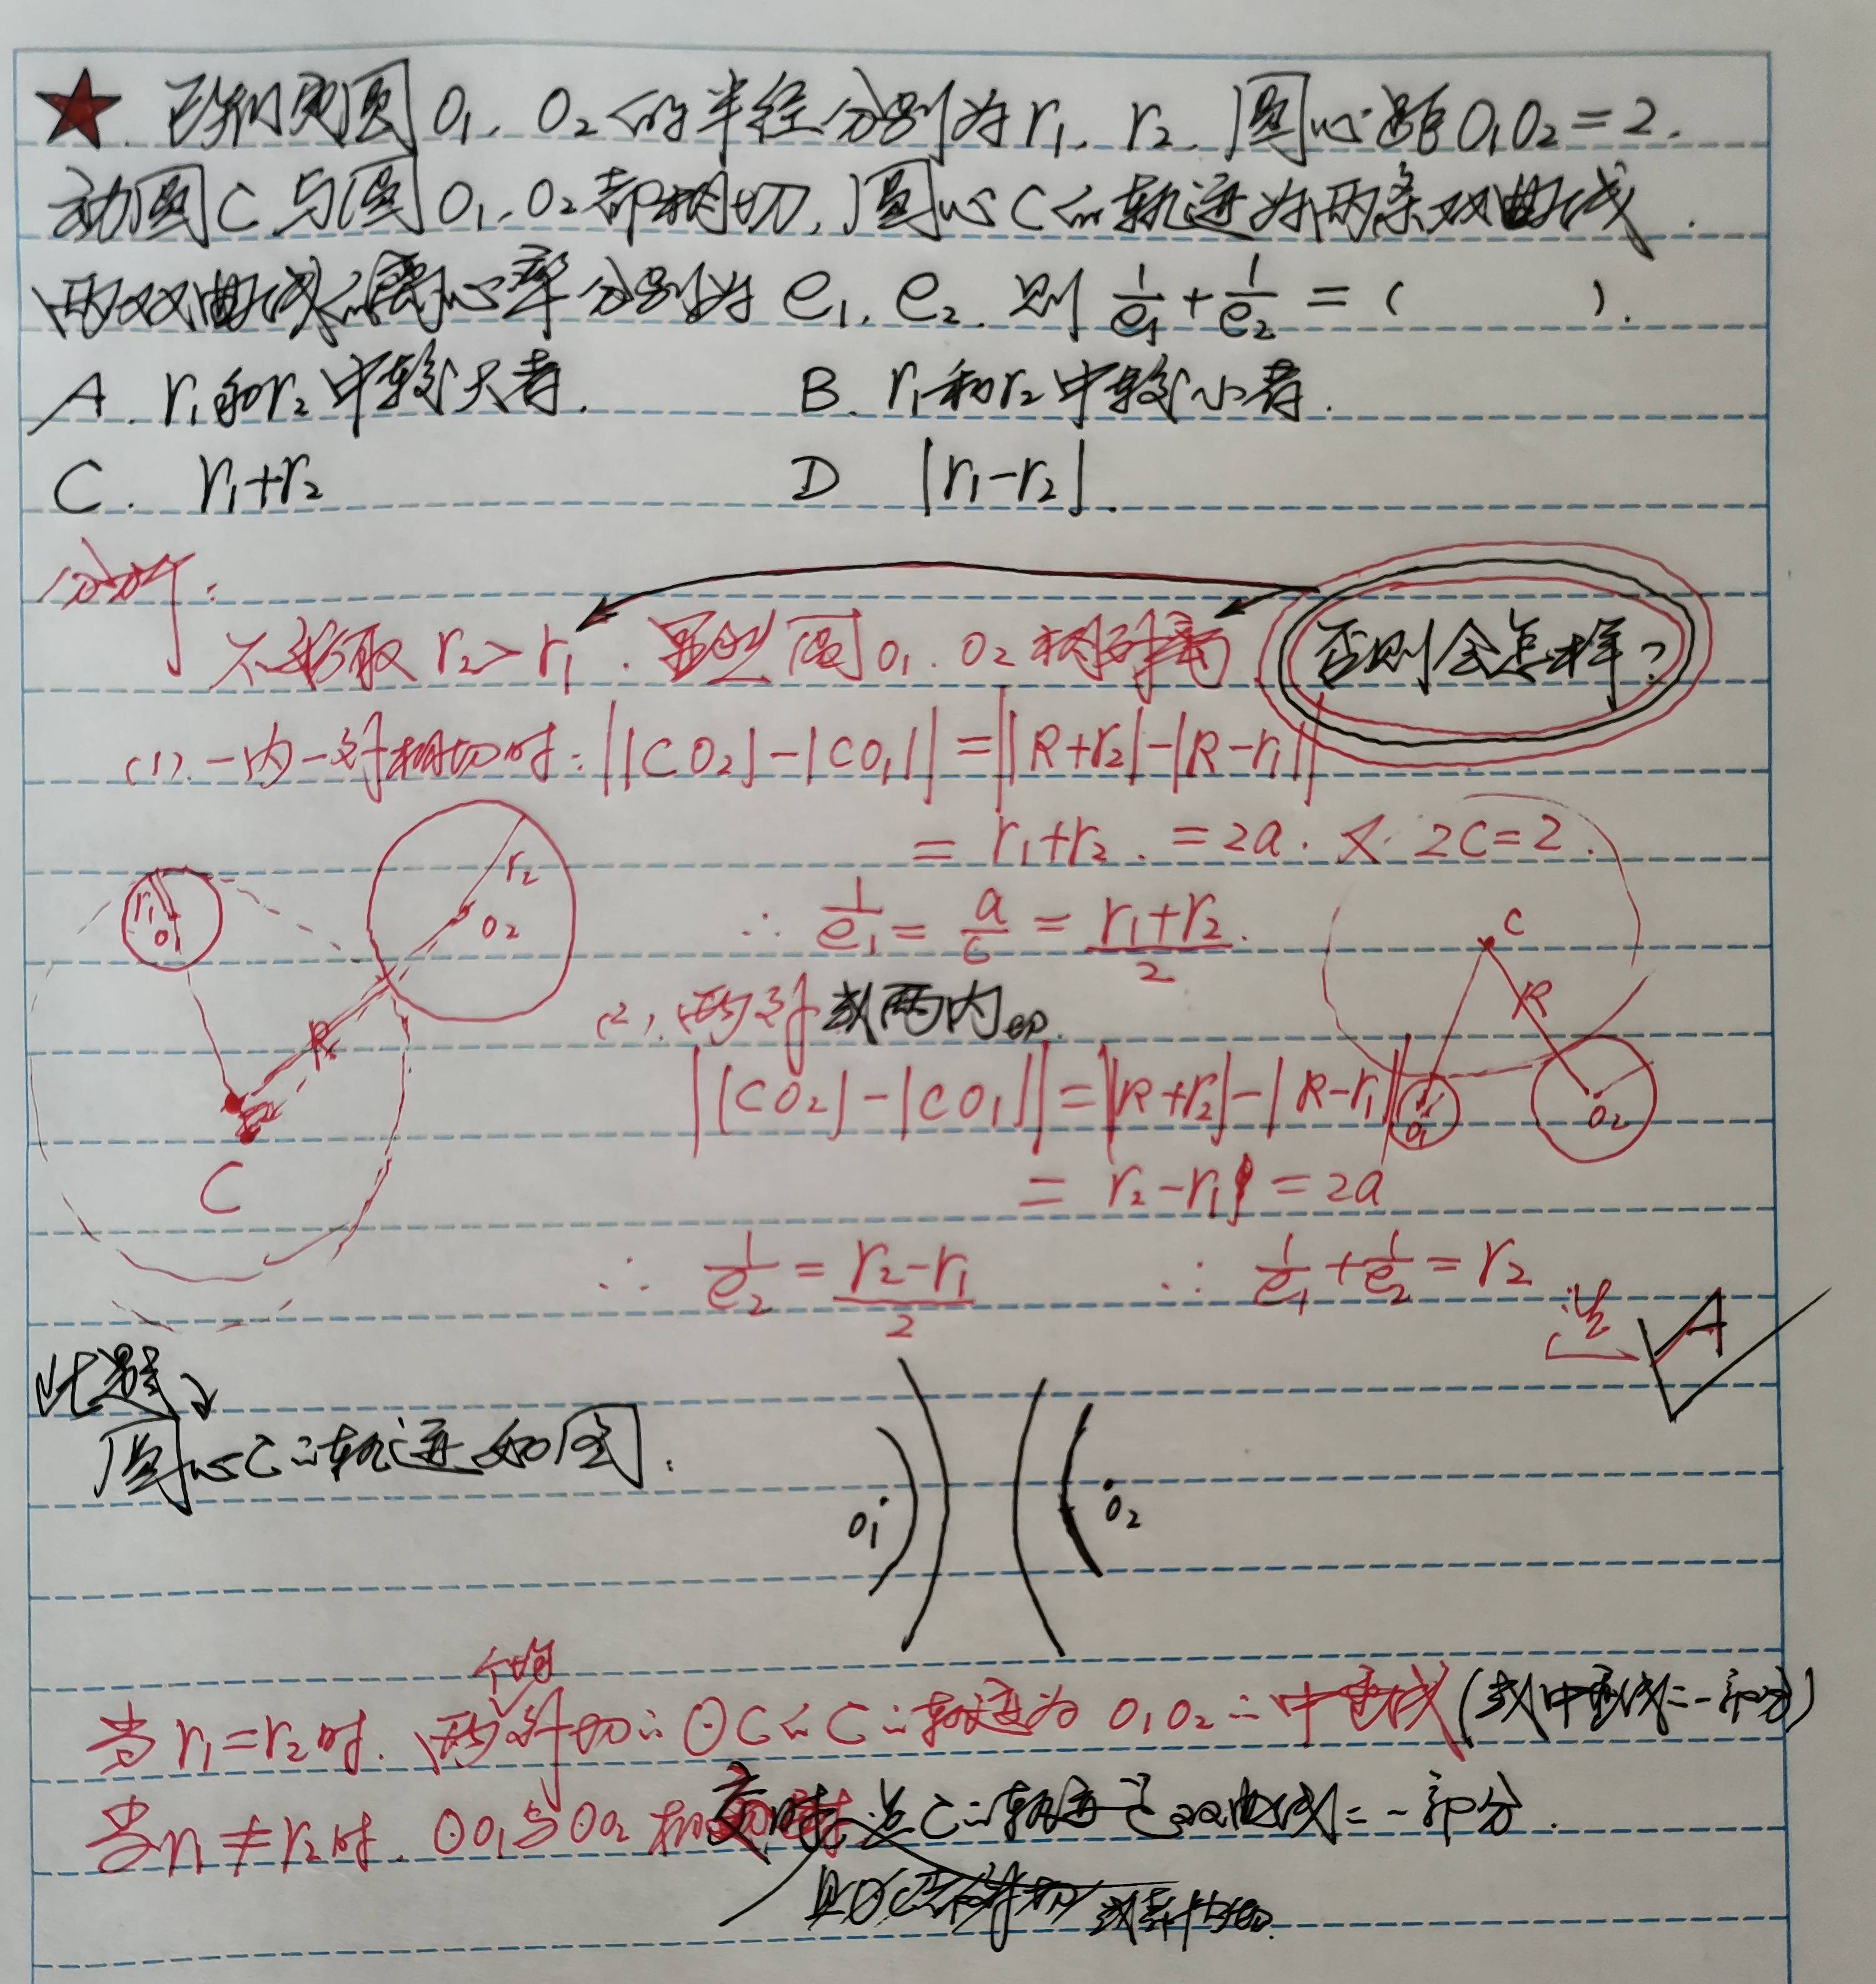 ★. 已知定圆O₁、O₂的半径分别为r₁、r₂、圆心距O₁O₂=2.
动圆C与圆O₁、O₂都相切,圆心C的轨迹为两条双曲线.
两双曲线的离心率分别为e₁,e₂.则 1/e₁+1/e₂=( ).
A. r₁和r₂中较大者. B. r₁和r₂中较小者.
C. r₁+r₂ D |r₁-r₂|.
分析:
不妨取r₂>r₁.显然圆O₁、O₂相离 否则会怎样?
(1).一内一外相切时:||CO₂|-|CO₁||=||R+r₂|-|R-r₁||
=r₁+r₂.=2a.又2C=2.
∴ 1/e₁=a/c=(r₁+r₂)/2.
(2).两外或两内切.
||CO₂|-|CO₁||=||R+r₂|-|R-r₁||
=r₂-r₁=2a
∴ 1/e₂=(r₂-r₁)/2 ∴ 1/e₁+1/e₂=r₂
选A
r₁
O₁
r₂
O₂
R
C
C
R
O₁
O₂
此题
圆心C的轨迹如图:
O₁ O₂
当r₁=r₂时.两外切的⊙C的C的轨迹为O₁O₂的中垂线(或中垂线的一部分)
当r₁≠r₂时.⊙O₁与⊙O₂相交时,点C的轨迹是双曲线的一部分.